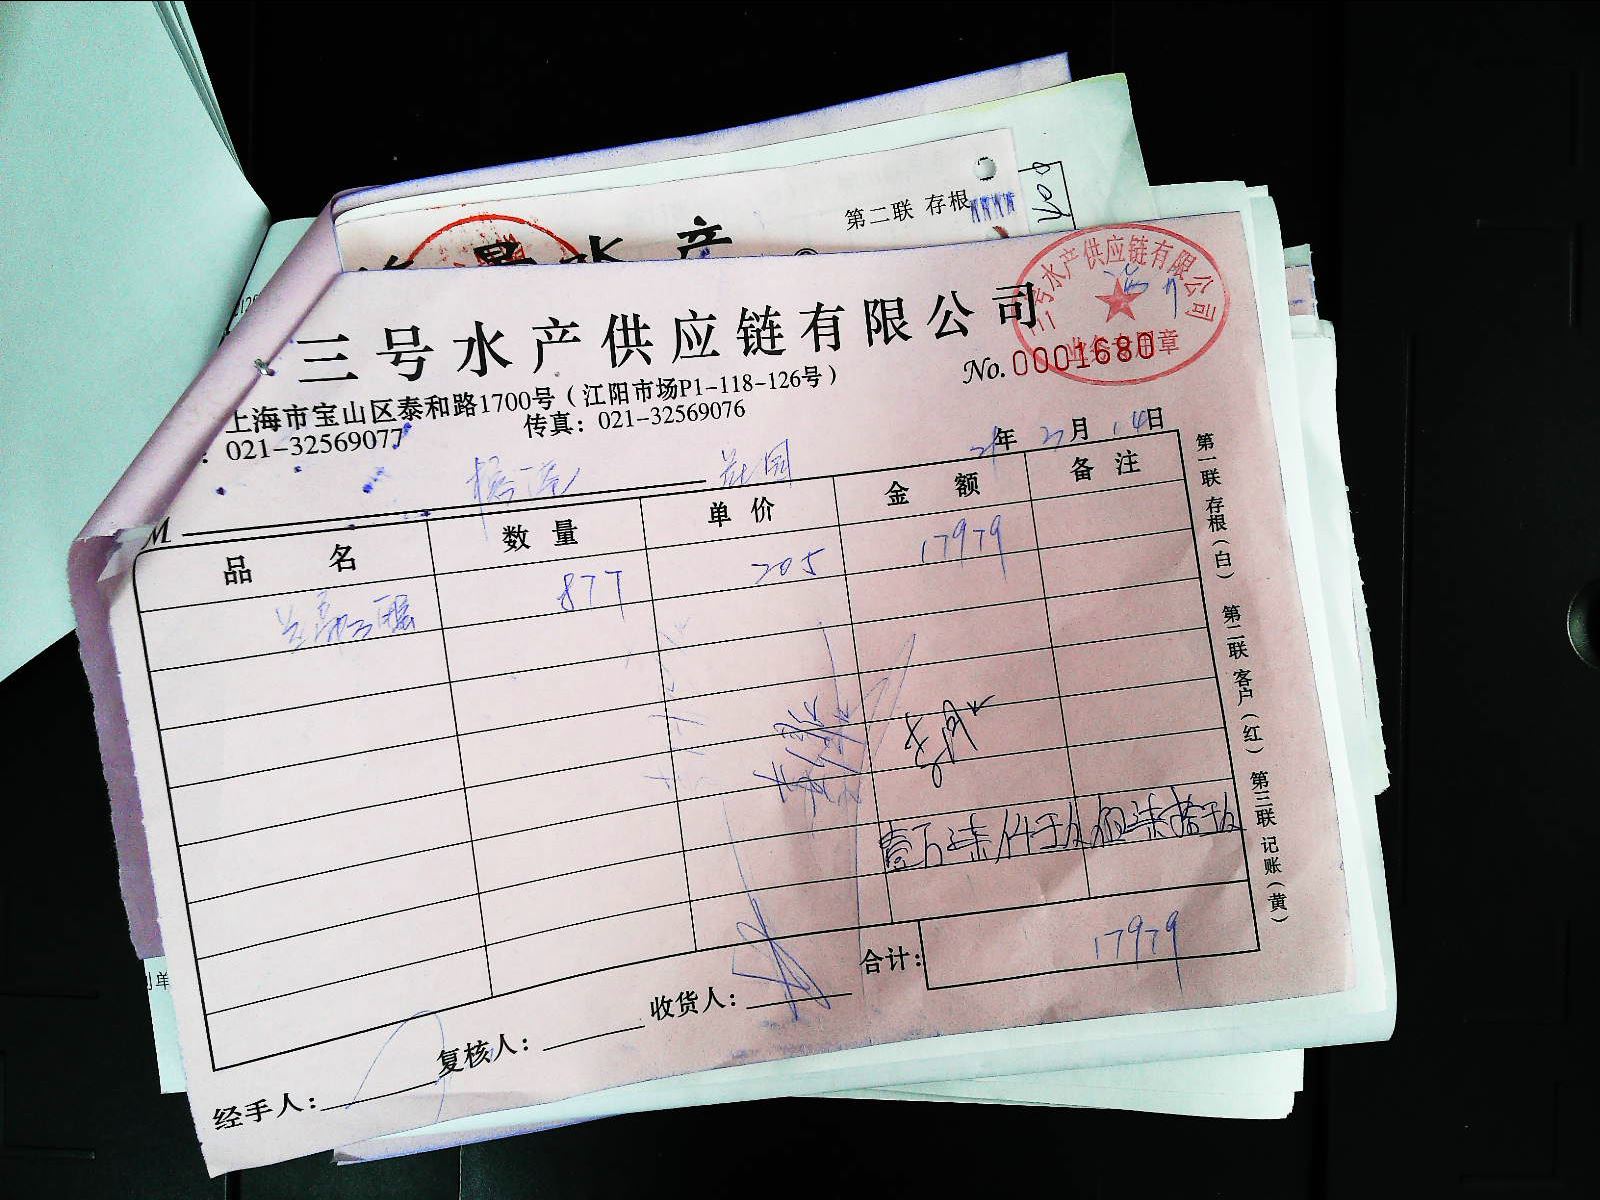 第二联 存根
水产
三号水产供应链有限公司
三号水产供应链有限公司
业务专用章
No.0001680
上海市宝山区泰和路1700号（江阳市场P1-118-126号）
：021-32569077 传真：021-32569076
21年2月14日
M
品名 数量 单价 金额 备注
877 205 17979
壹万柒仟玖佰柒拾玖
合计： 17979
经手人： 复核人： 收货人：
第一联 存根（白） 第二联 客户（红） 第三联 记账（黄）